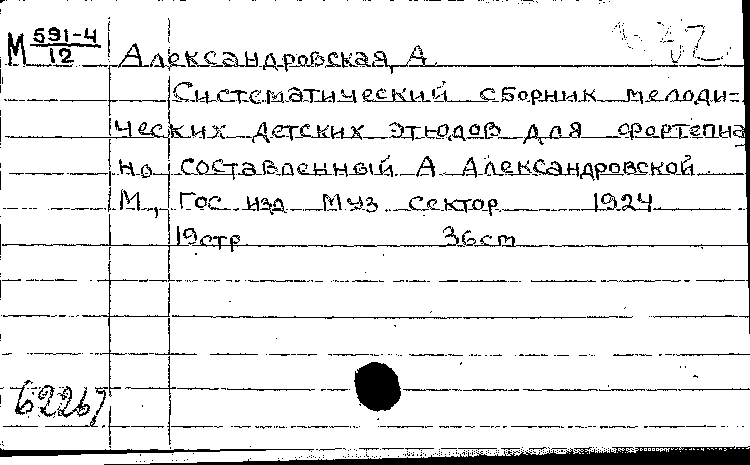 М 591-4/12
Александровская, А.
Систематический сборник мелоди=
ческих детских этюдов для фортепиа
но составленный А Александровской
М, Гос изд Муз сектор 1924
19стр 36cm
62267